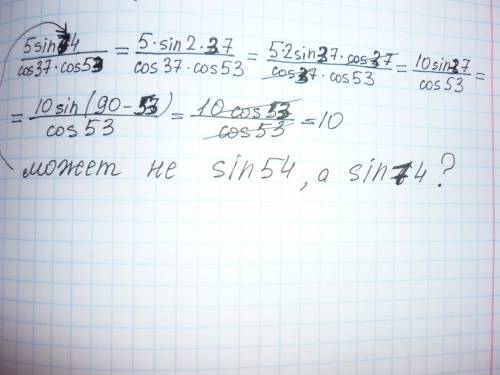 5sin74/cos37·cos53 = 5·sin2·37/cos37·cos53 = 5·2sin37·cos37/cos37·cos53 = 10sin37/cos53 =
= 10sin(90-53)/cos53 = 10cos53/cos53 = 10
может не sin54, а sin74?